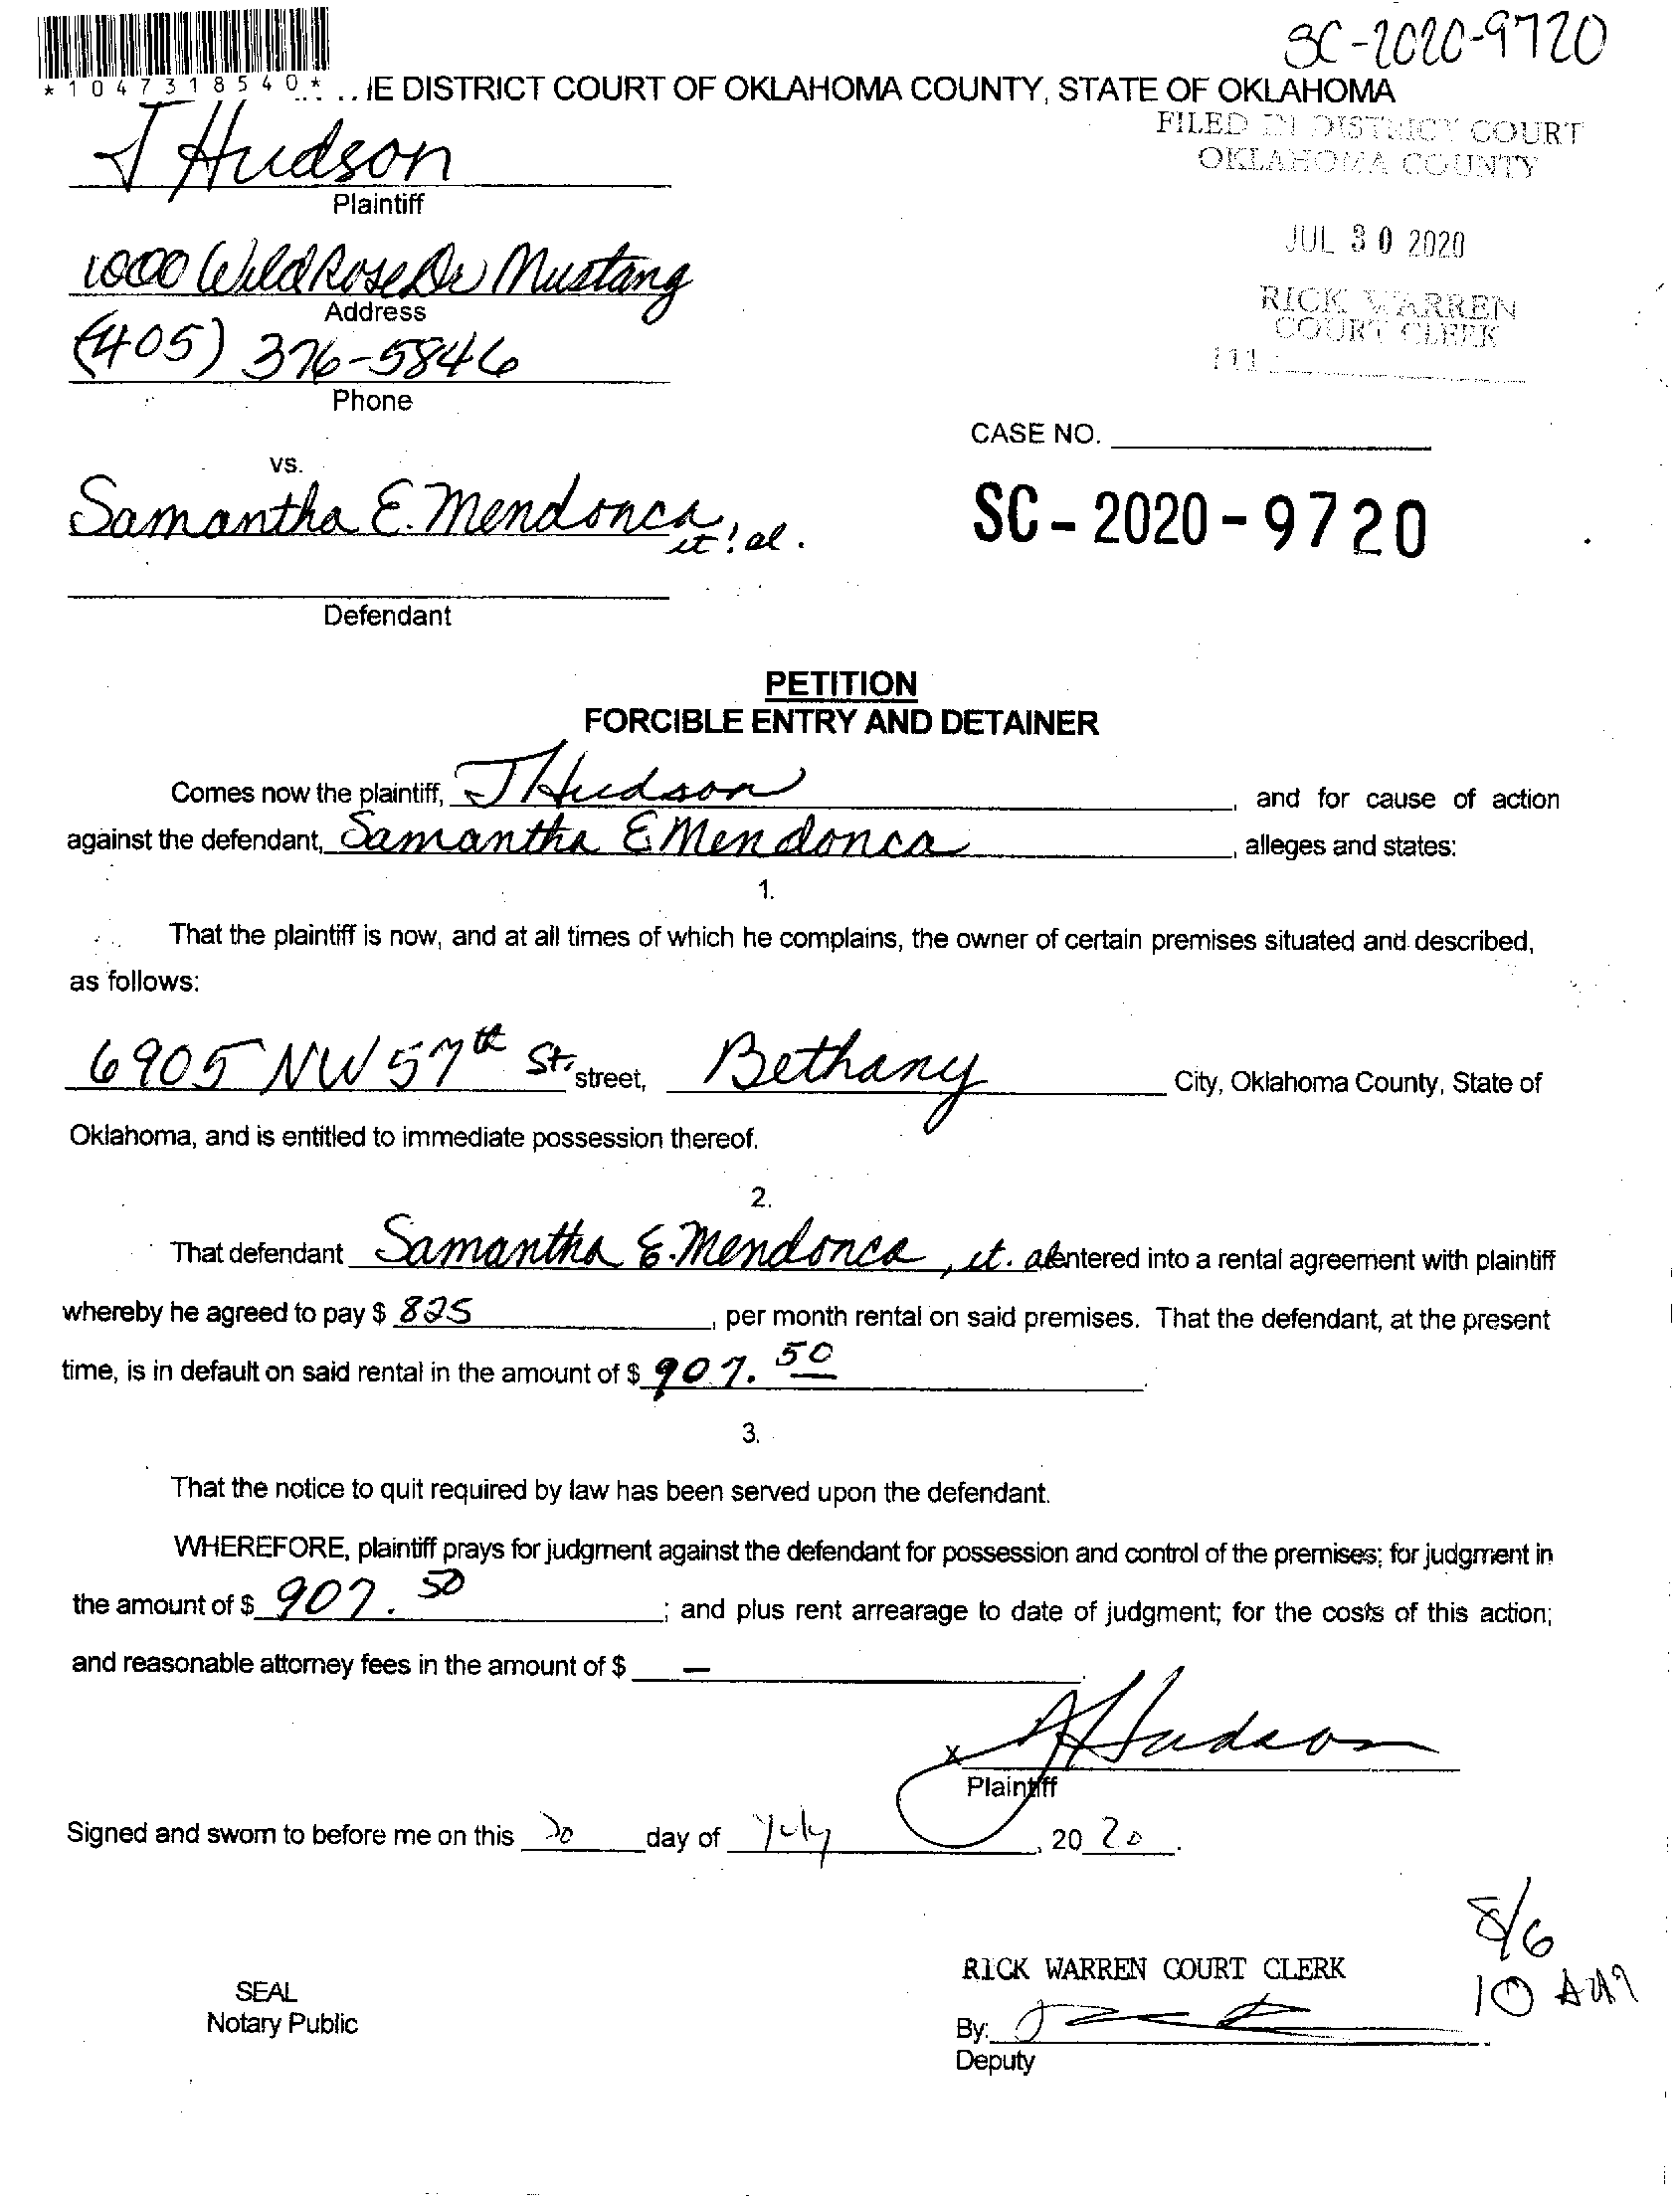 SC-2020-9720
*1047318540*
IE DISTRICT COURT OF OKLAHOMA COUNTY, STATE OF OKLAHOMA
FILED IN DISTRICT COURT
OKLAHOMA COUNTY
J Hudson
Plaintiff
JUL 30 2020
1000 Wild Rose Dr Mustang
Address
RICK WARREN
COURT CLERK
111
(405) 376-5846
Phone
CASE NO.
vs.
Samantha E. Mendonca, et! al.
SC - 2020 - 9720
Defendant
PETITION
FORCIBLE ENTRY AND DETAINER
Comes now the plaintiff, J Hudson, and for cause of action
against the defendant, Samantha E Mendonca, alleges and states:
1.
That the plaintiff is now, and at all times of which he complains, the owner of certain premises situated and described,
as follows:
6905 NW 57th St. street, Bethany City, Oklahoma County, State of
Oklahoma, and is entitled to immediate possession thereof.
2.
That defendant Samantha E. Mendonca, et. al entered into a rental agreement with plaintiff
whereby he agreed to pay $ 825, per month rental on said premises. That the defendant, at the present
time, is in default on said rental in the amount of $ 907.50
3.
That the notice to quit required by law has been served upon the defendant.
WHEREFORE, plaintiff prays for judgment against the defendant for possession and control of the premises; for judgment in
the amount of $ 907.50; and plus rent arrearage to date of judgment; for the costs of this action;
and reasonable attorney fees in the amount of $ —
x J Hudson
Plaintiff
Signed and sworn to before me on this 30 day of July, 20 20.
8/6
10 AM
RICK WARREN COURT CLERK
SEAL
Notary Public
By:
Deputy